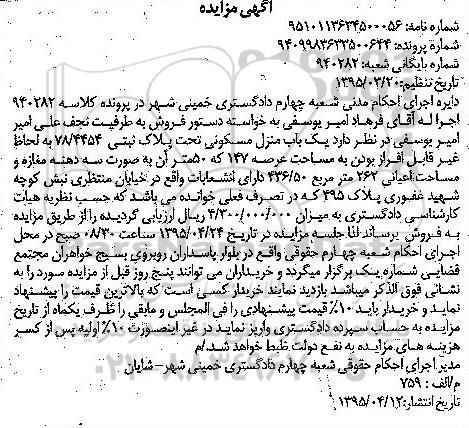 آگهی مزایده
شماره نامه: 9510113634500056
شماره پرونده: 9409983633500644
شماره بایگانی شعبه: 940282
تاریخ تنظیم: 1395/03/20
دایره اجرای احکام مدنی شعبه چهارم دادگستری خمینی شهر در پرونده کلاسه 940282
اجرا له آقای فرهاد امیر یوسفی به خواسته دستور فروش به طرفیت نجف علی امیر
امیر یوسفی در نظر دارد یک باب منزل مسکونی تحت پلاک ثبتی 78/4454 به لحاظ
غیر قابل افراز بودن به مساحت عرصه 147 که 50متر آن به صورت سه دهنه مغازه و
مساحت اعیانی 262 متر مربع 436/50 دارای انشعابات واقع در خیابان منتظری نبش کوچه
شهید غفوری پلاک 495 که در تصرف فعلی خوانده می باشد که حسب نظریه هیات
کارشناسی دادگستری به میزان 4/300/000/000 ریال ارزیابی گردیده را از طریق مزایده
به فروش برساند لذا جلسه مزایده در تاریخ 1395/04/24 ساعت 08/30 صبح در محل
اجرای احکام شعبه چهارم حقوقی واقع در بلوار پاسداران روبروی بسیج خواهران مجتمع
قضایی شماره یک برگزار میگردد و خریداران می توانند پنج روز قبل از مزایده مورد را به
نشانی فوق الذکر میباشد بازدید نمایند خریدار کسی است که بالاترین قیمت را پیشنهاد
نماید و خریدار باید 10% قیمت پیشنهادی را فی المجلس و مابقی را ظرف یکماه از تاریخ
مزایده به حساب سپرده دادگستری واریز نماید در غیر اینصورت 10% اولیه پس از کسر
هزینه های مزایده به نفع دولت ظبط خواهد شد/م
مدیر اجرای احکام حقوقی شعبه چهارم دادگستری خمینی شهر-شایان
م/الف: 759
تاریخ انتشار: 1395/04/12